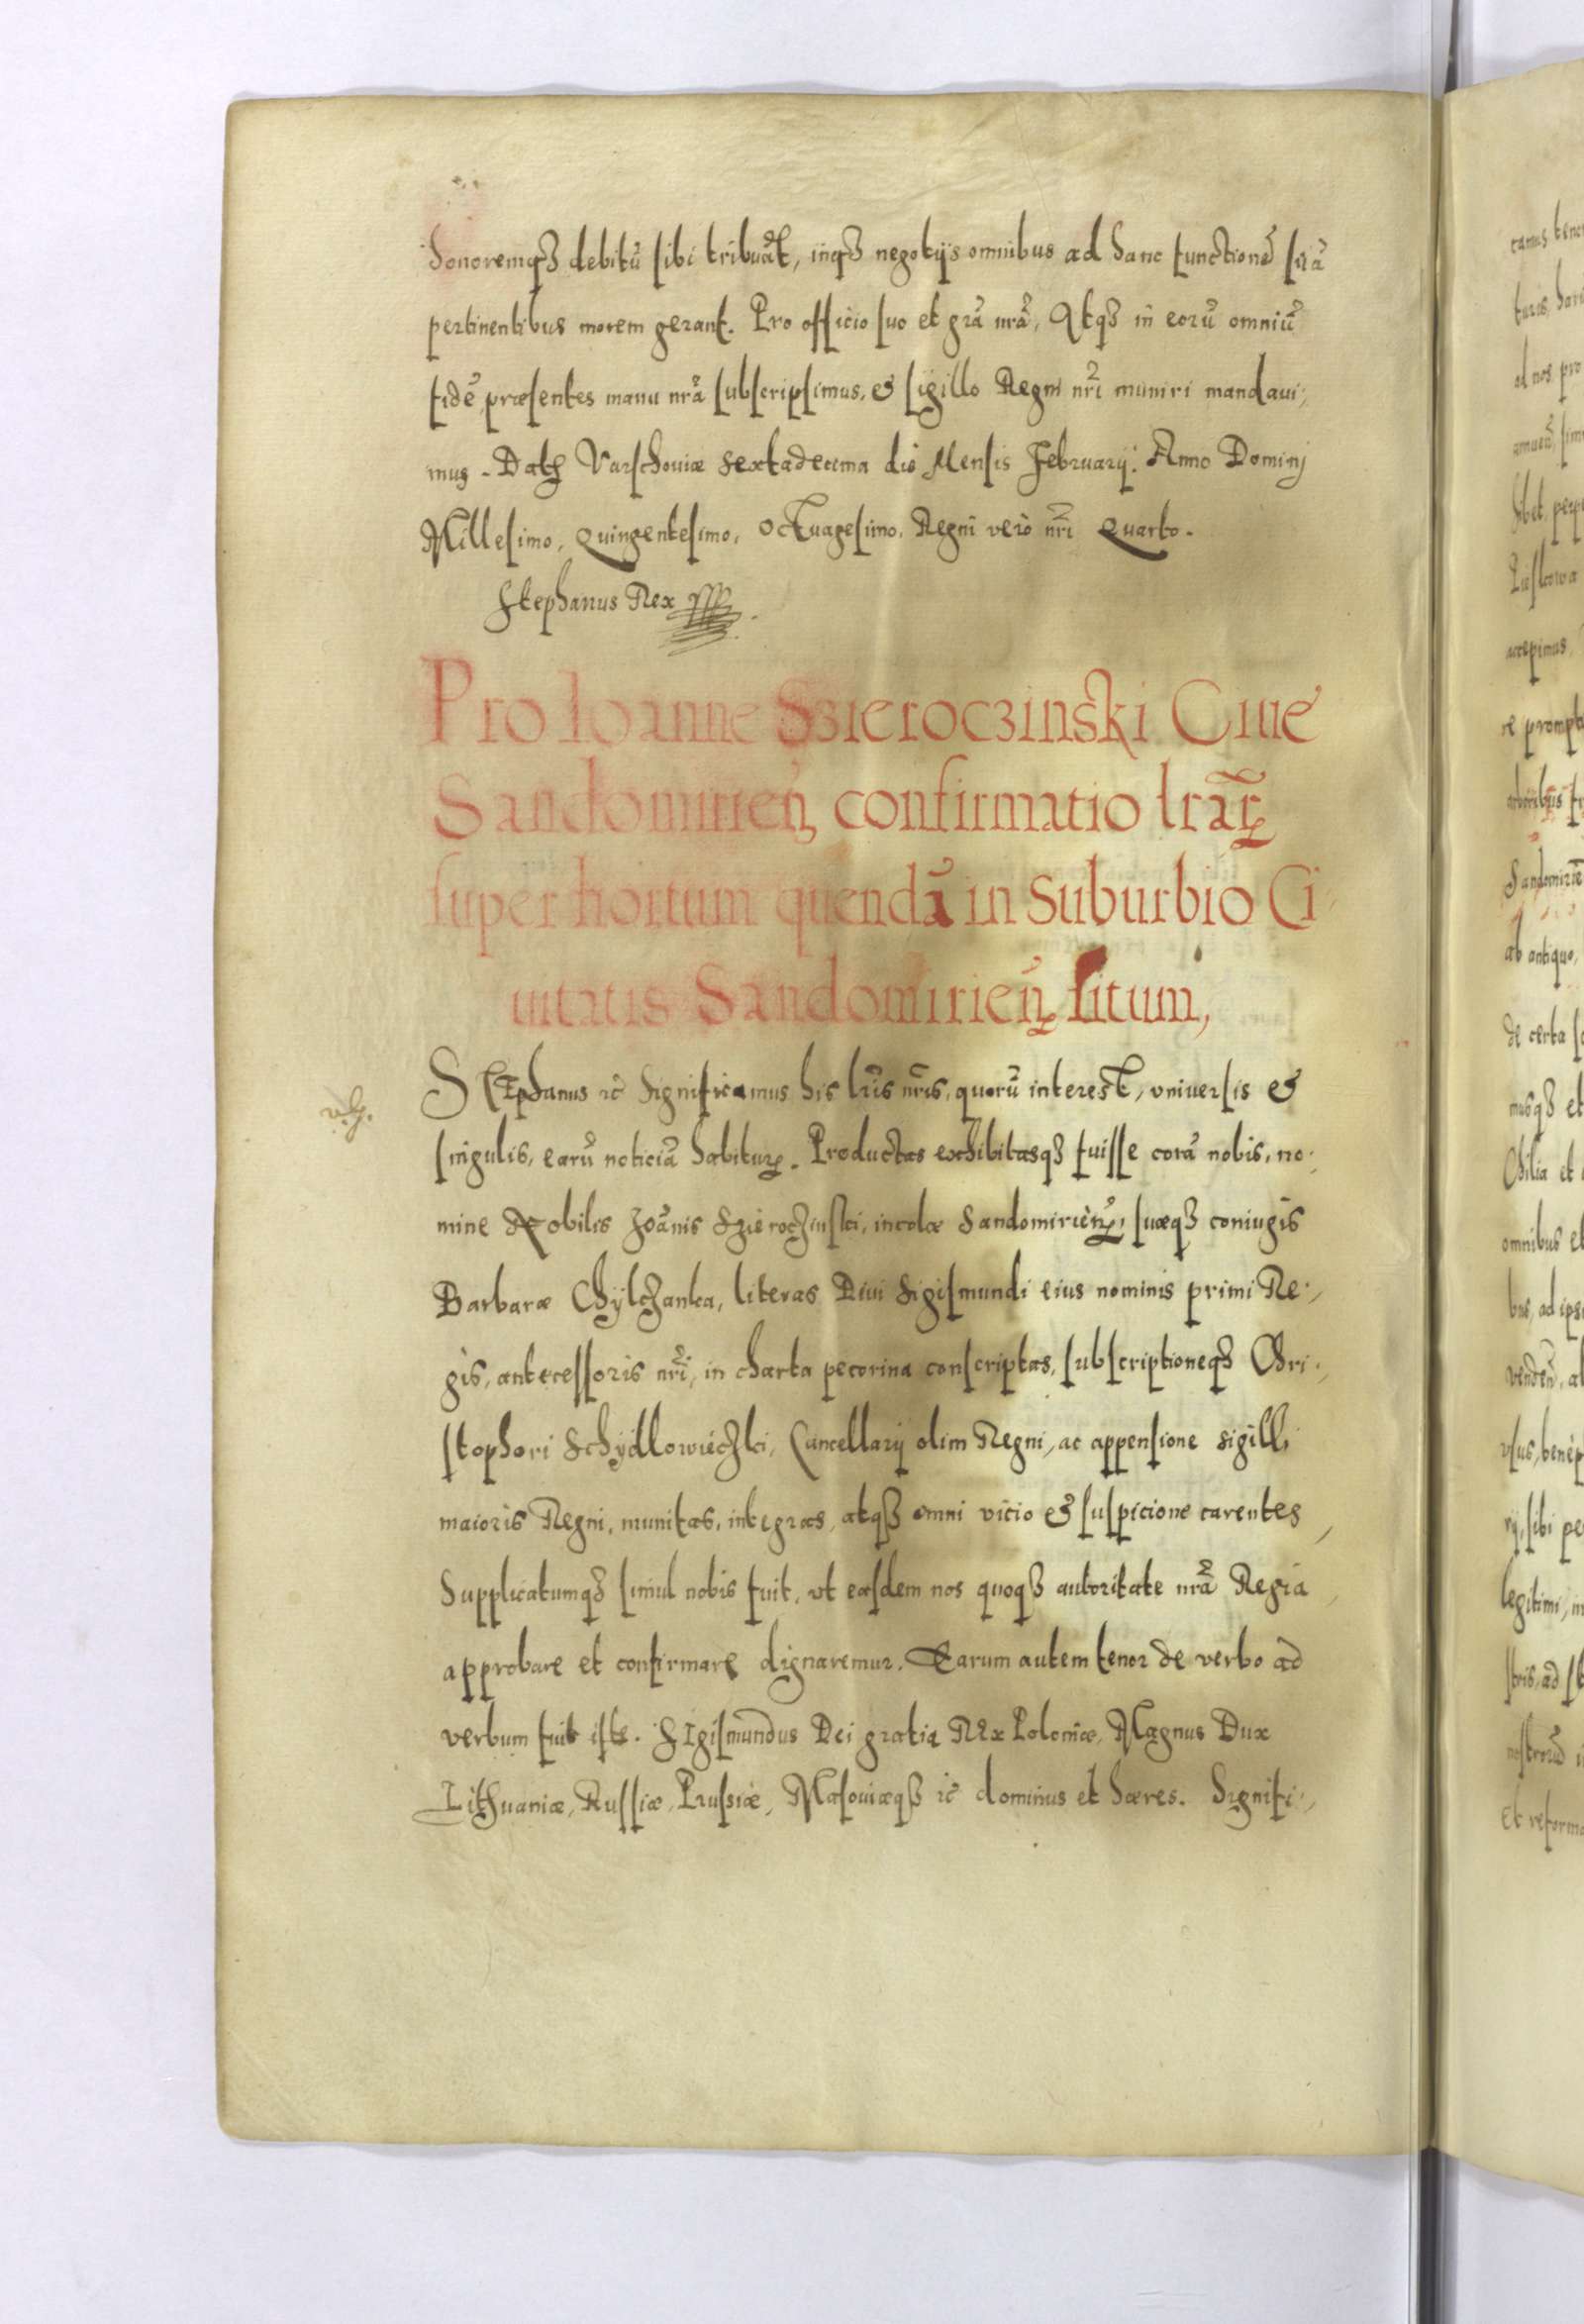 honoremq₃ debitū sibi tribuāt, inq₃ negotijs omnibus ad hanc functionē suā
pertinentibus morem gerant. Pro officio suo et grā nrā, Atq₃ in eorū omniū
fidē, præsentes manu nrā subscripsimus, & sigillo Regni nrī muniri mandaui,
mus. Datꝫ Varschouiæ Sextadecima die Mensis Februarij. Anno Dominj
Millesimo, Quingentesimo, Octuagesimo, Regni vero nrī Quarto.
Stephanus Rex
Pro Ioanne Szieroczinski Ciue
Sandomirien̄ confirmatio lrārꝝ
super hortum quendā in Suburbio Ci
uitatis Sandomirien̄ situm,
STephanus ꝛc̄ Significamus his lrīs nrīs, quorū interest, vniuersis &
singulis, earū noticiā habiturꝝ. Productas exhibitasq₃ fuisse corā nobis, no,
mine Nobilis Joānis Szieroczinski, incolæ Sandomirien̄, suæq₃ coniugis
Barbaræ Chÿlczanka, literas Diui Sigismundi eius nominis primi Re,
gis, antecessoris nrī, in charta pecorina conscriptas, subscriptioneq₃ Chri,
stophori Schÿdlowieczki, Cancellarij olim Regni, ac appensione sigilli
maioris Regni, munitas, integras, atq₃ omni vicio & suspicione carentes,
Supplicatumq₃ simul nobis fuit, vt easdem nos quoq₃ autoritate nrā Regia,
approbare et confirmare dignaremur. Earum autem tenor de verbo ad
verbum fuit iste. SIgismundus Dei gratia REx Poloniæ, Magnus Dux
Lithuaniæ, Russiæ, Prussiæ, Masouiæq₃ ꝛc̄ dominus et hæres. Signifi,